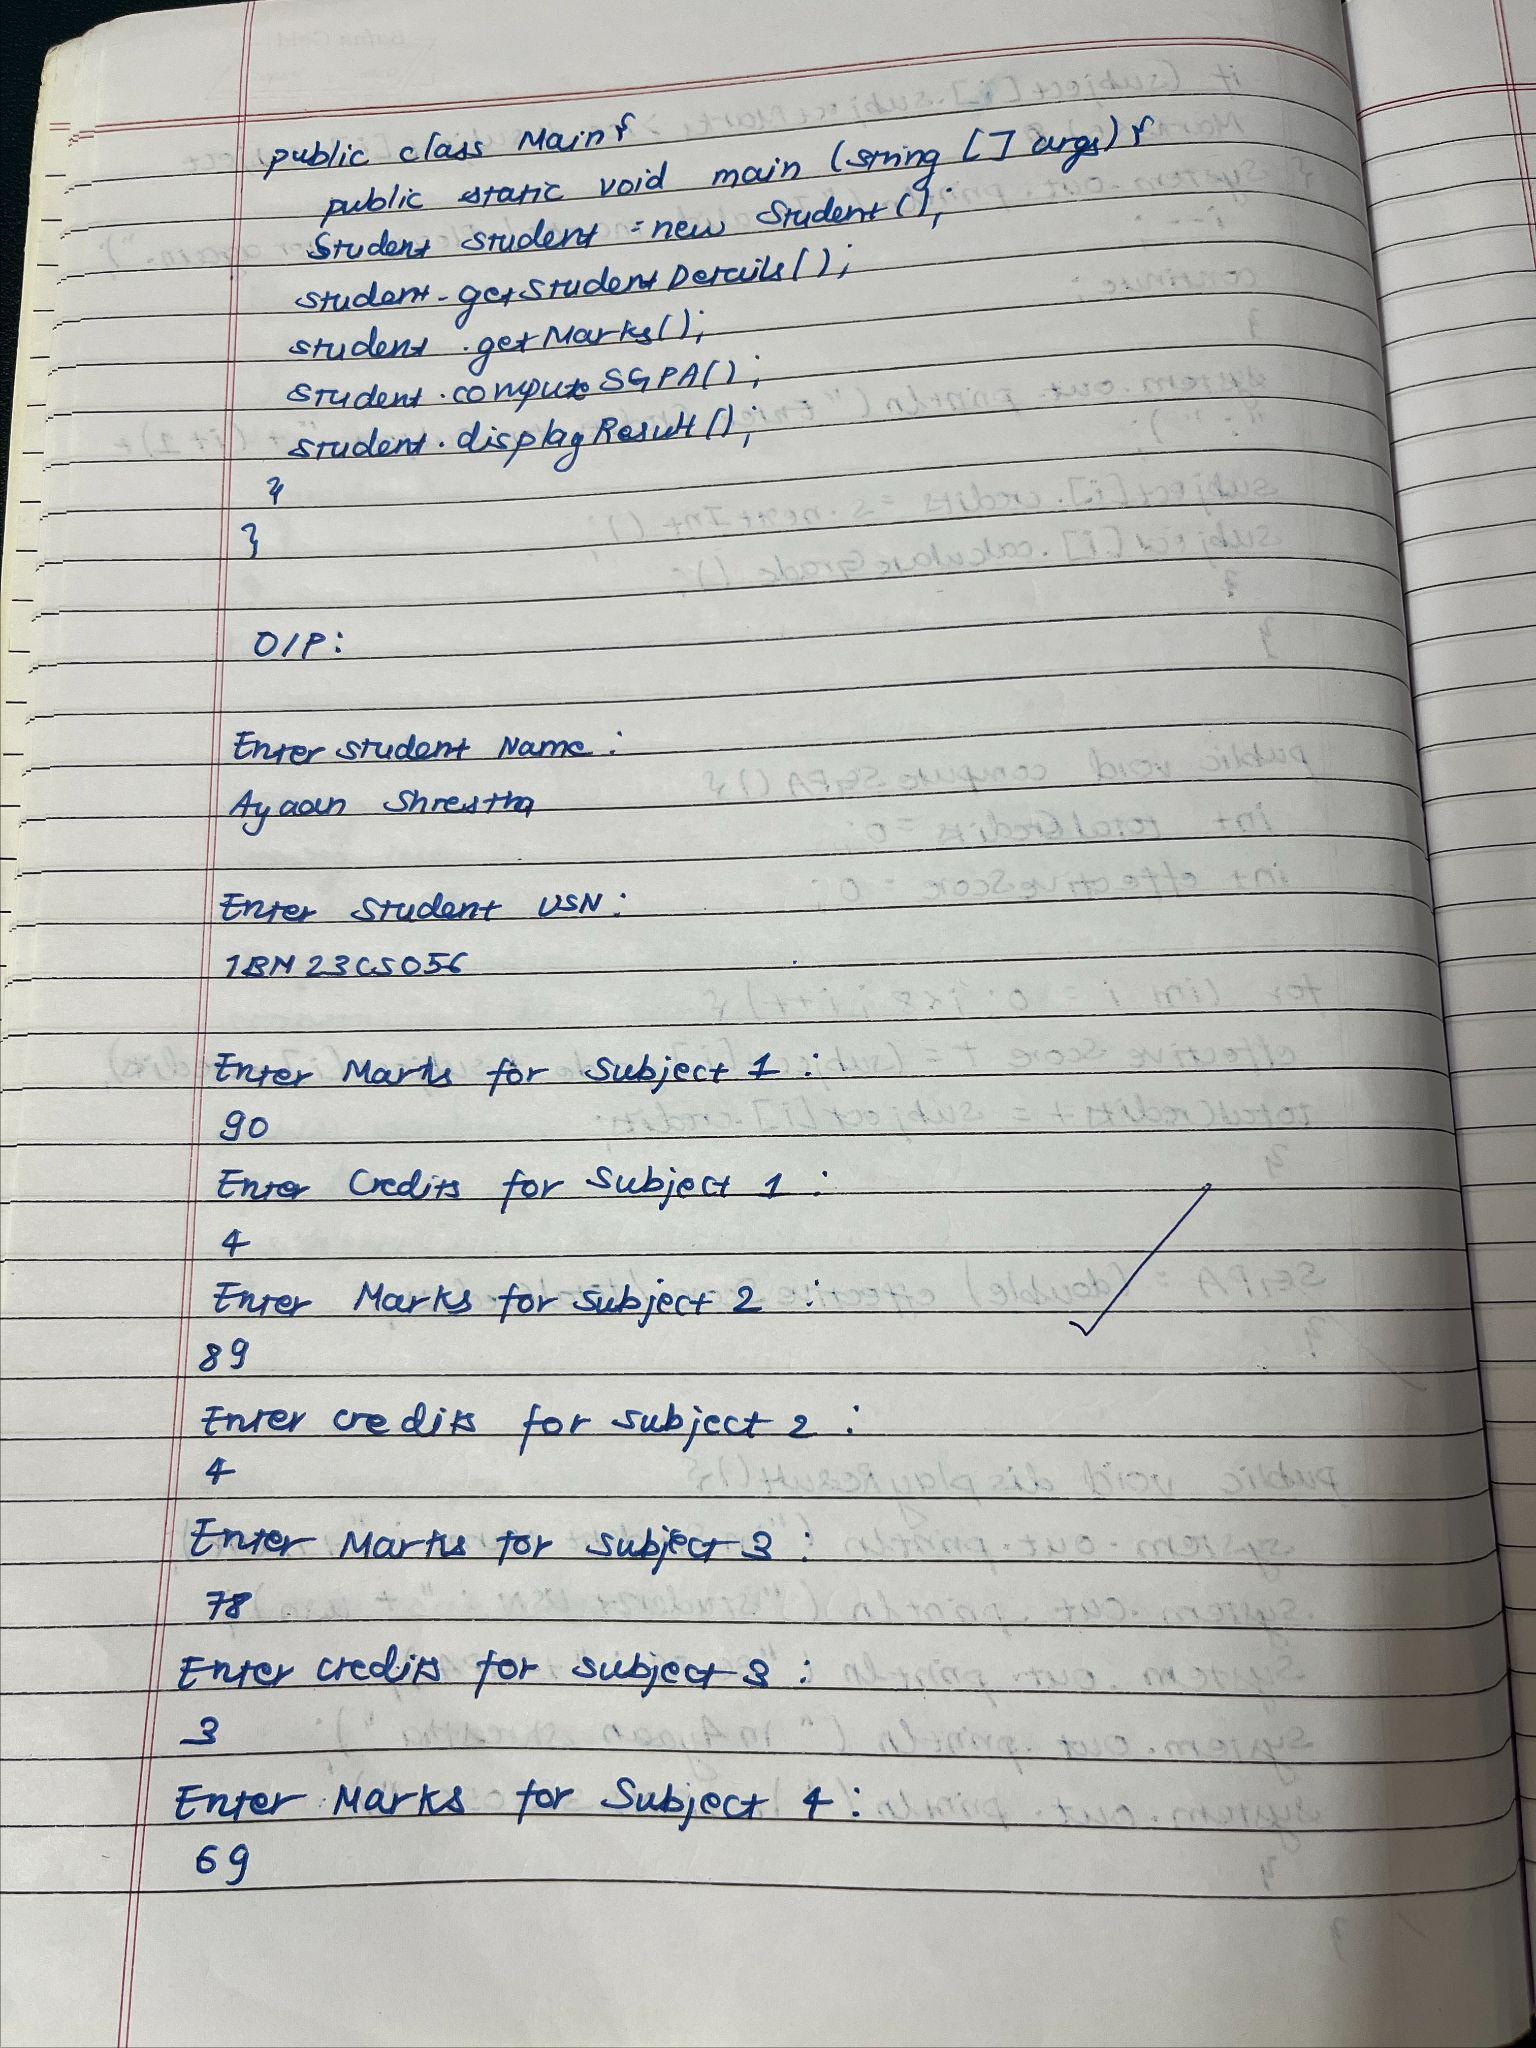 public class Main{
public static void main (String [] args) {
Student student = new Student();
student.getStudentDetails();
student.getMarks();
student.computeSGPA();
student.displayResult();
}
}
O/P:
Enter student Name:
Ayaan Shrestha
Enter Student USN:
1BM23CS056
Enter Marks for Subject 1:
90
Enter Credits for Subject 1:
4
Enter Marks for Subject 2:
89
Enter credits for subject 2:
4
Enter Marks for subject 3:
78
Enter credits for subject 3:
3
Enter Marks for Subject 4:
69